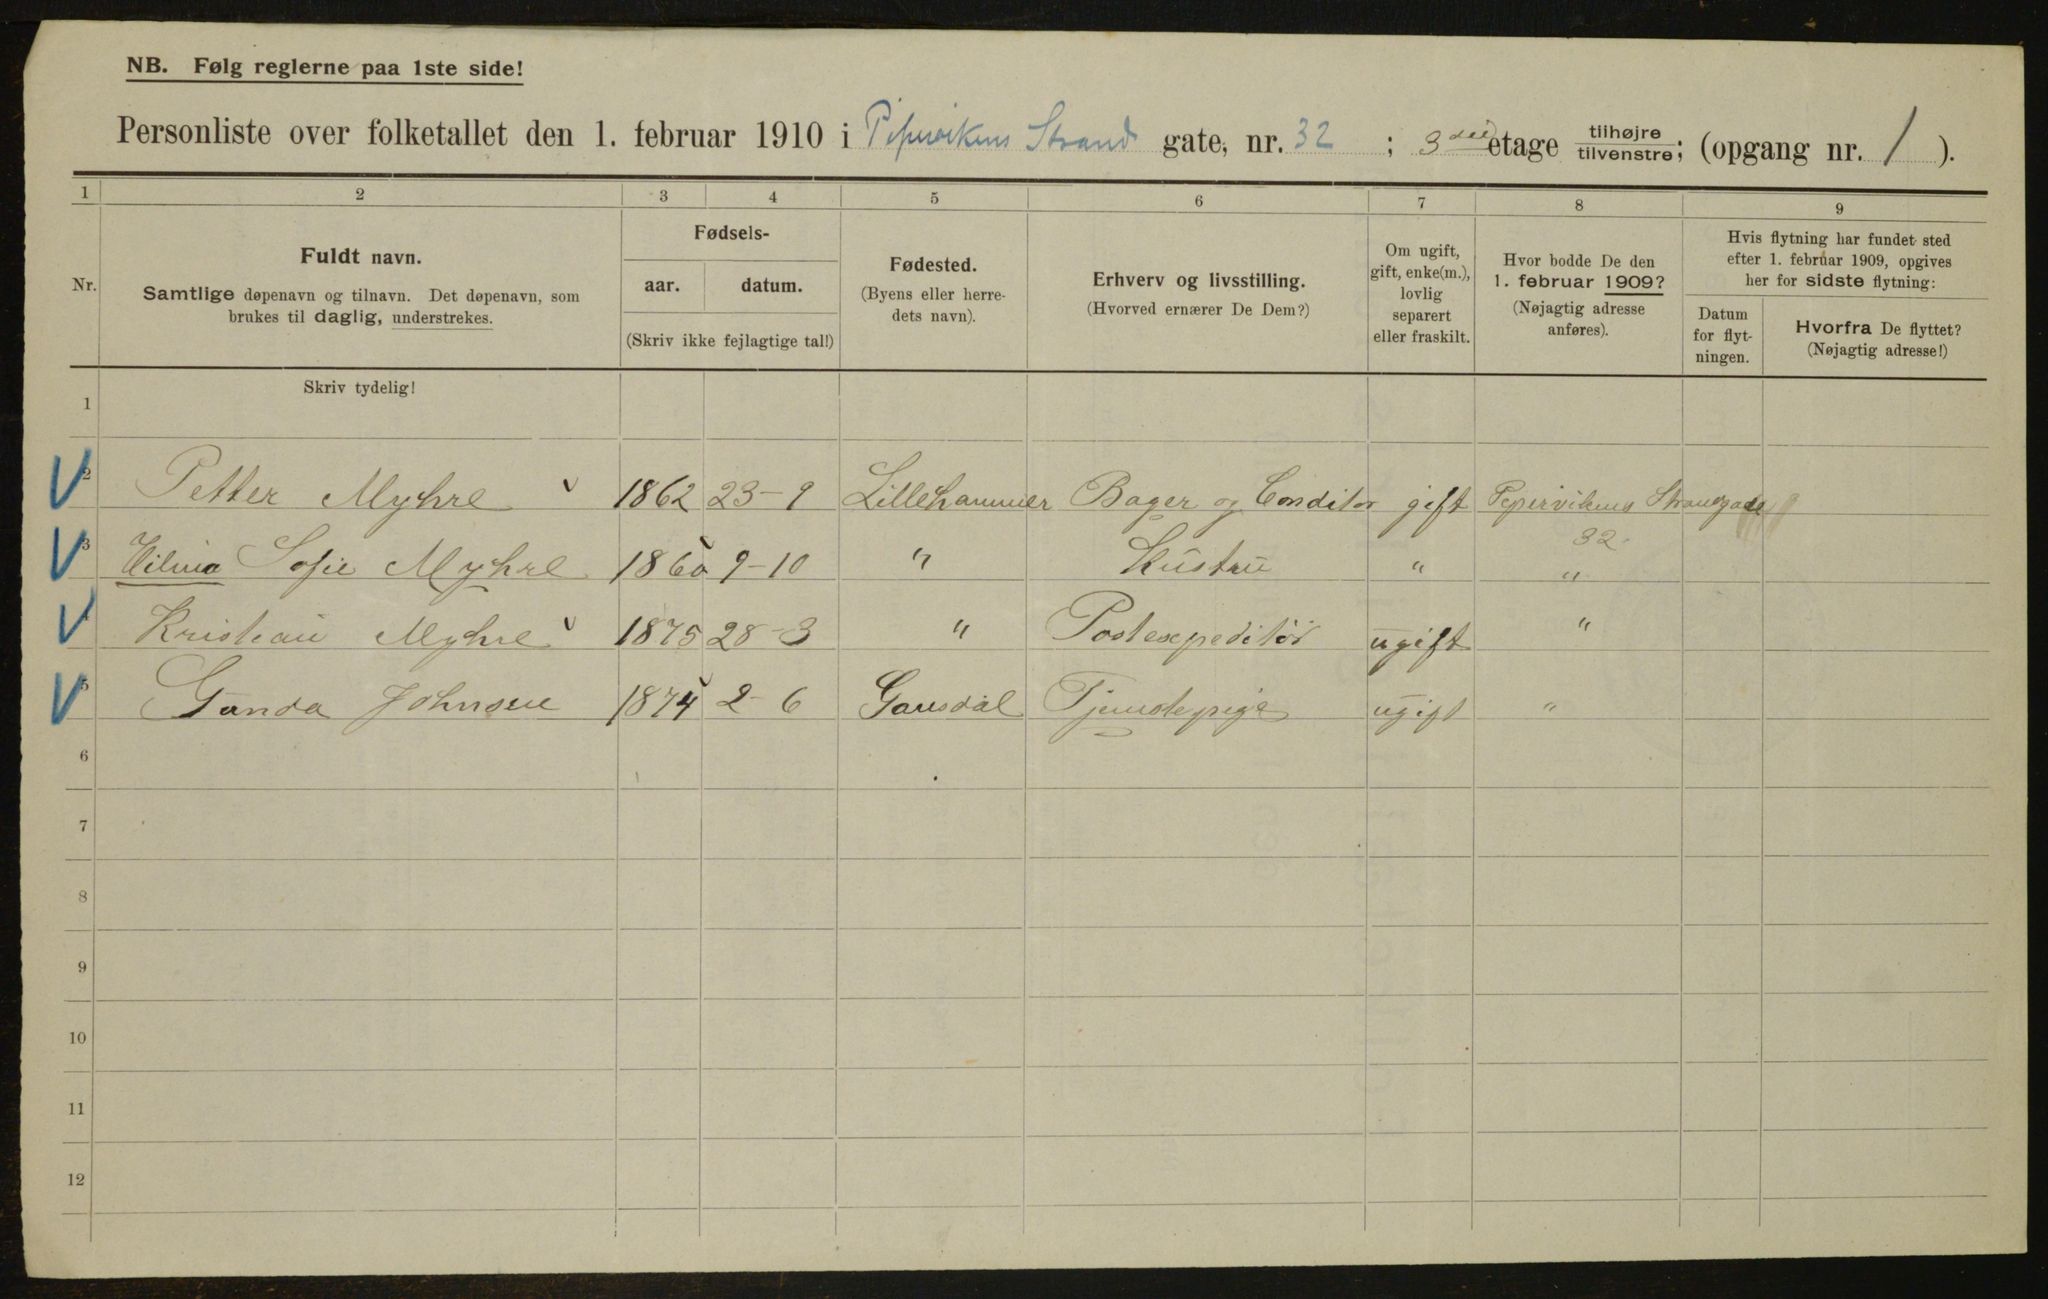 NB. Følg reglerne paa 1ste side!
Personliste over folketallet den 1. februar 1910 i Pipervikens Strand gate, nr. 32 ; 3die etage tilhøjre/tilvenstre; (opgang nr. 1 ).
1 2 3 4 5 6 7 8 9
Nr.
Fuldt navn.
Samtlige døpenavn og tilnavn. Det døpenavn, som
brukes til daglig, understrekes.
Fødsels-
aar. datum.
(Skriv ikke fejlagtige tal!)
Fødested.
(Byens eller herre-
dets navn).
Erhverv og livsstilling.
(Hvorved ernærer De Dem?)
Om ugift,
gift, enke(m.),
lovlig
separert
eller fraskilt.
Hvor bodde De den
1. februar 1909?
(Nøjagtig adresse
anføres).
Hvis flytning har fundet sted
efter 1. februar 1909, opgives
her for sidste flytning:
Datum
for flyt-
ningen.
Hvorfra De flyttet?
(Nøjagtig adresse!)
Skriv tydelig!
1
2 Petter Myhre 1862 23-9 Lillehammer Bager og Conditor gift Pepervikens Strandgade
32
3 Hilma Sofie Myhre 1860 9-10 " Hustru " "
4 Kristian Myhre 1875 28-3 " Postexpeditør ugift "
5 Gunda Johnsen 1874 2-6 Gausdal Tjenstepige ugift "
6
7
8
9
10
11
12